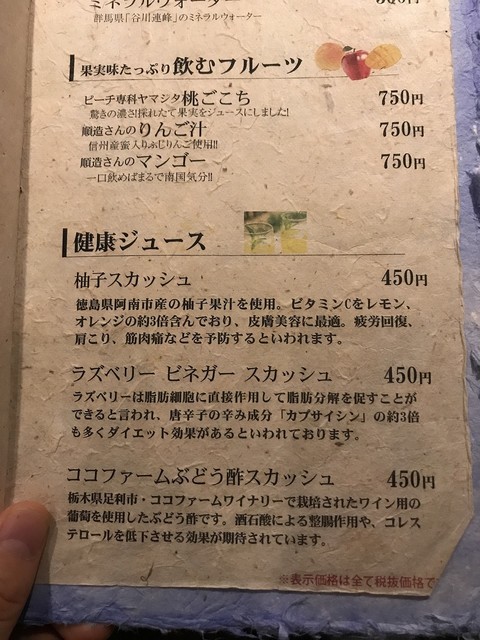 ミネラルウォーター
群馬県「谷川連峰」のミネラルウォーター
果実味たっぷり飲むフルーツ
ピーチ専科ヤマシタ桃ごこち 750円
驚きの濃さ!採れたて果実をジュースにしました!
順造さんのりんご汁 750円
信州産蜜入りふじりんご使用!!
順造さんのマンゴー 750円
一口飲めばまるで南国気分!!
健康ジュース
柚子スカッシュ 450円
徳島県阿南市産の柚子果汁を使用。ビタミンCをレモン、
オレンジの約3倍含んでおり、皮膚美容に最適。疲労回復、
肩こり、筋肉痛などを予防するといわれます。
ラズベリー ビネガー スカッシュ 450円
ラズベリーは脂肪細胞に直接作用して脂肪分解を促すことが
できると言われ、唐辛子の辛み成分「カプサイシン」の約3倍
も多くダイエット効果があるといわれております。
ココファームぶどう酢スカッシュ 450円
栃木県足利市・ココファームワイナリーで栽培されたワイン用の
葡萄を使用したぶどう酢です。酒石酸による整腸作用や、コレス
テロールを低下させる効果が期待されています。
※表示価格は全て税抜価格で